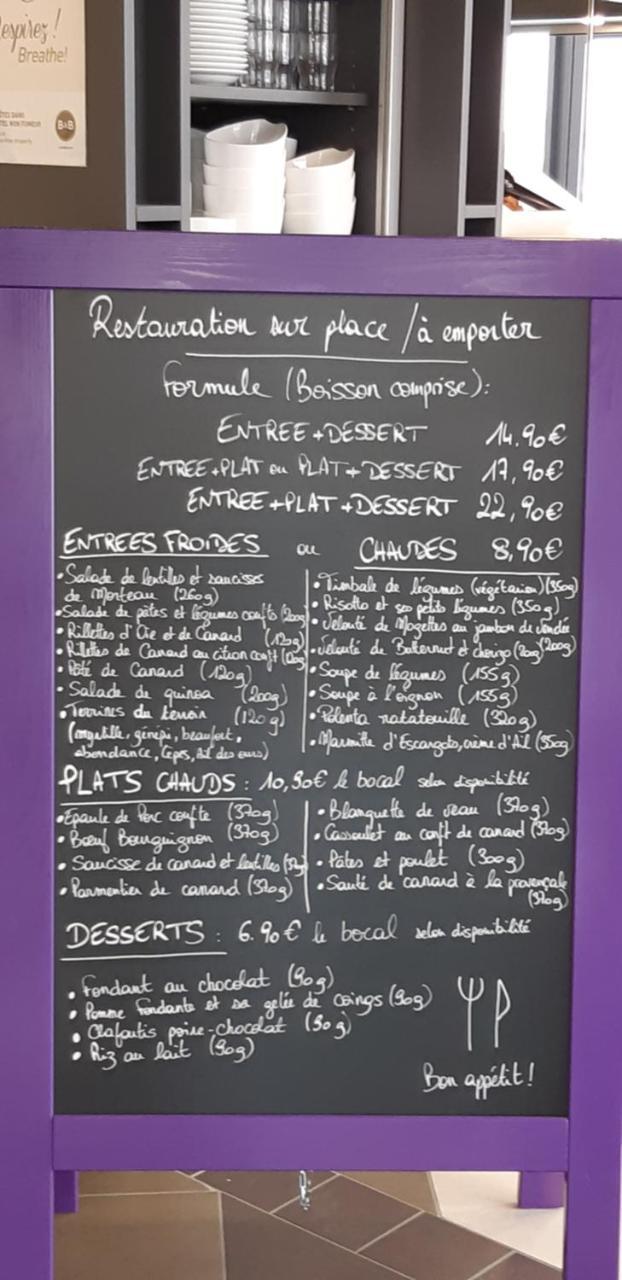 espirez !
Breathe!
B&B
Restauration sur place / à emporter
Formule (Boisson comprise) :
ENTREE + DESSERT 14,90€
ENTREE + PLAT ou PLAT + DESSERT 17,90€
ENTREE + PLAT + DESSERT 22,90€
ENTREES FROIDES ou CHAUDES 8,90€
• Salade de lentilles et saucisses
de Morteau (260g)
• Salade de pâtes et légumes confits (200g)
• Rillettes d'Oie et de Canard (120g)
• Rillettes de Canard au citron confit (120g)
• Pâté de Canard (120g)
• Salade de quinoa (200g)
• Terrines du terroir (120g)
(myrtille, génépi, beaufort,
abondance, Cèpes, Ail des ours)
• Timbale de légumes (végétarien) (350g)
• Risotto et ses petits légumes (350g)
• Velouté de Mogettes au jambon de vendée
(200g)
• Velouté de Butternut et chorizo
• Soupe de légumes (155g)
• Soupe à l'oignon (155g)
• Polenta ratatouille (320g)
• Marmite d'Escargots, crème d'Ail (350g)
PLATS CHAUDS : 10,90€ le bocal selon disponibilité
• Epaule de Porc confite (370g)
• Bœuf Bourguignon (370g)
• Saucisse de canard et lentilles
• Parmentier de canard (370g)
• Blanquette de veau (370g)
• Cassoulet au confit de canard (370g)
• Pâtes et poulet (300g)
• Sauté de canard à la provençale
(370g)
DESSERTS : 6.90€ le bocal selon disponibilité
• Fondant au chocolat (90g)
• Pomme fondante et sa gelée de coings (90g)
• Clafoutis poire-chocolat (90g)
• Riz au lait (90g)
Bon appétit !